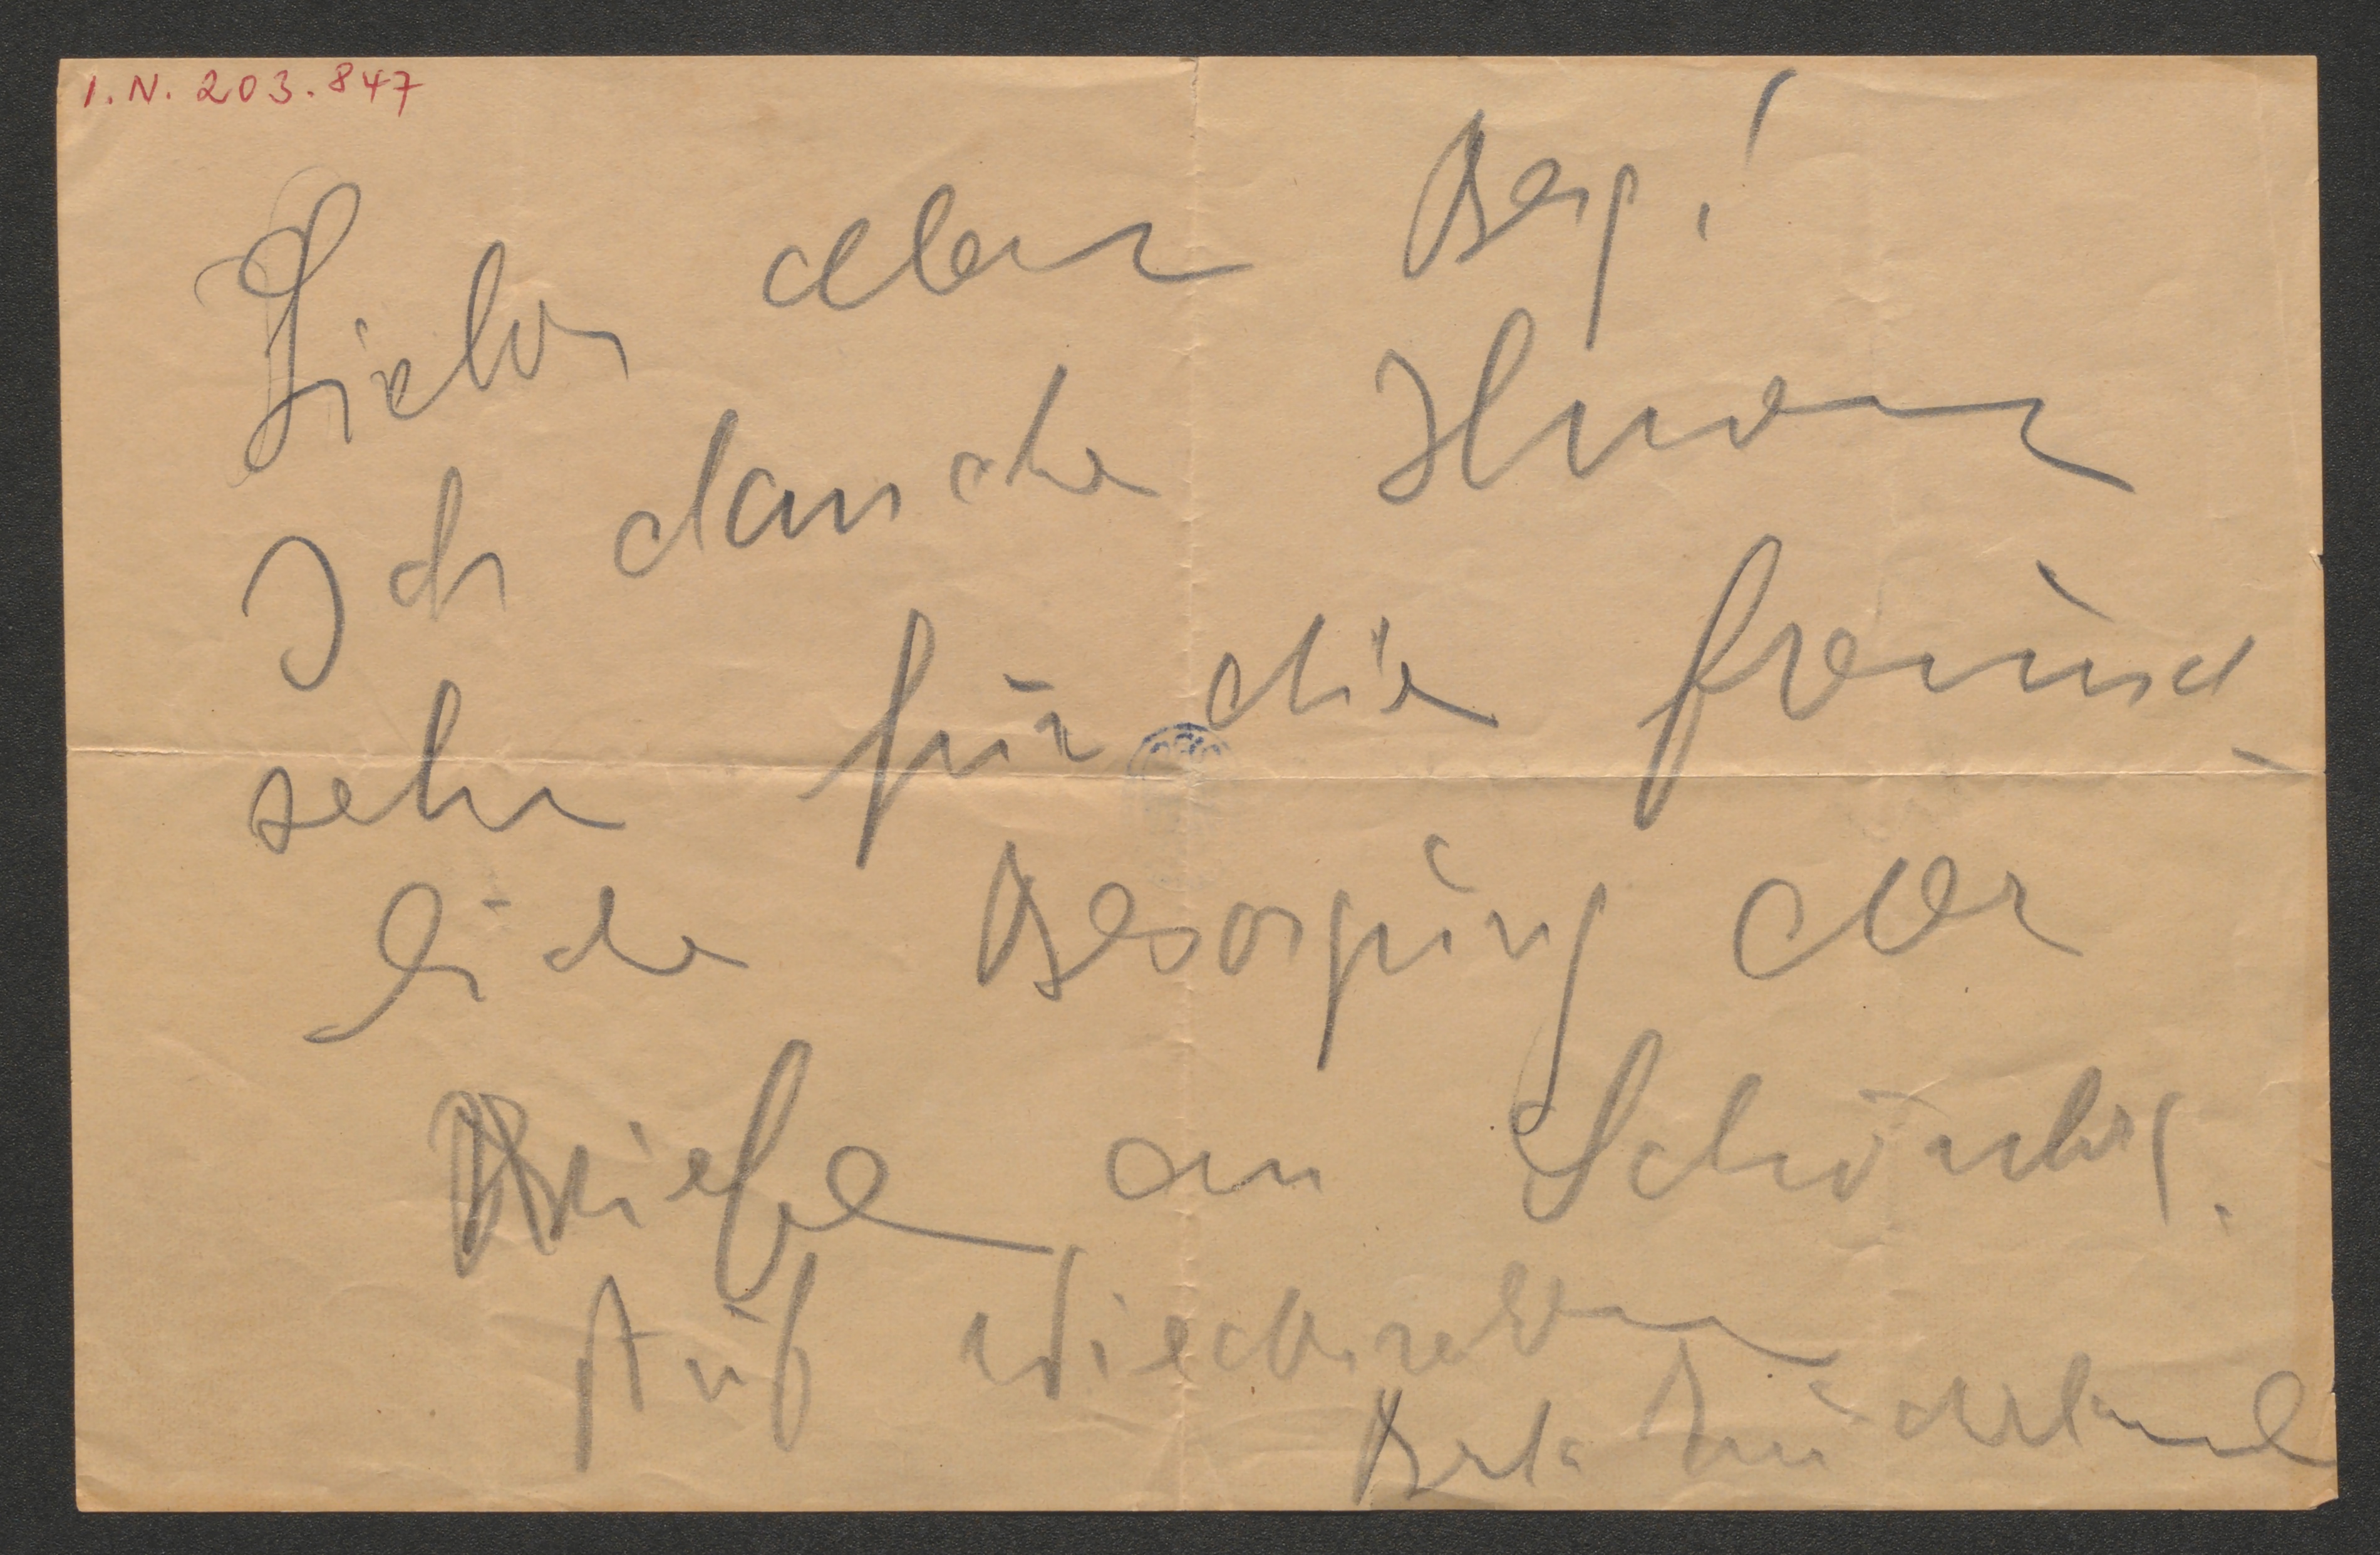 I.N. 203.847
Lieber Alban Berg!
Ich danke Ihnen
sehr für die freund-
liche Besorgung der
Briefe an Schönbrg.
Auf Wiedersehen
Berta Zuckerkandl